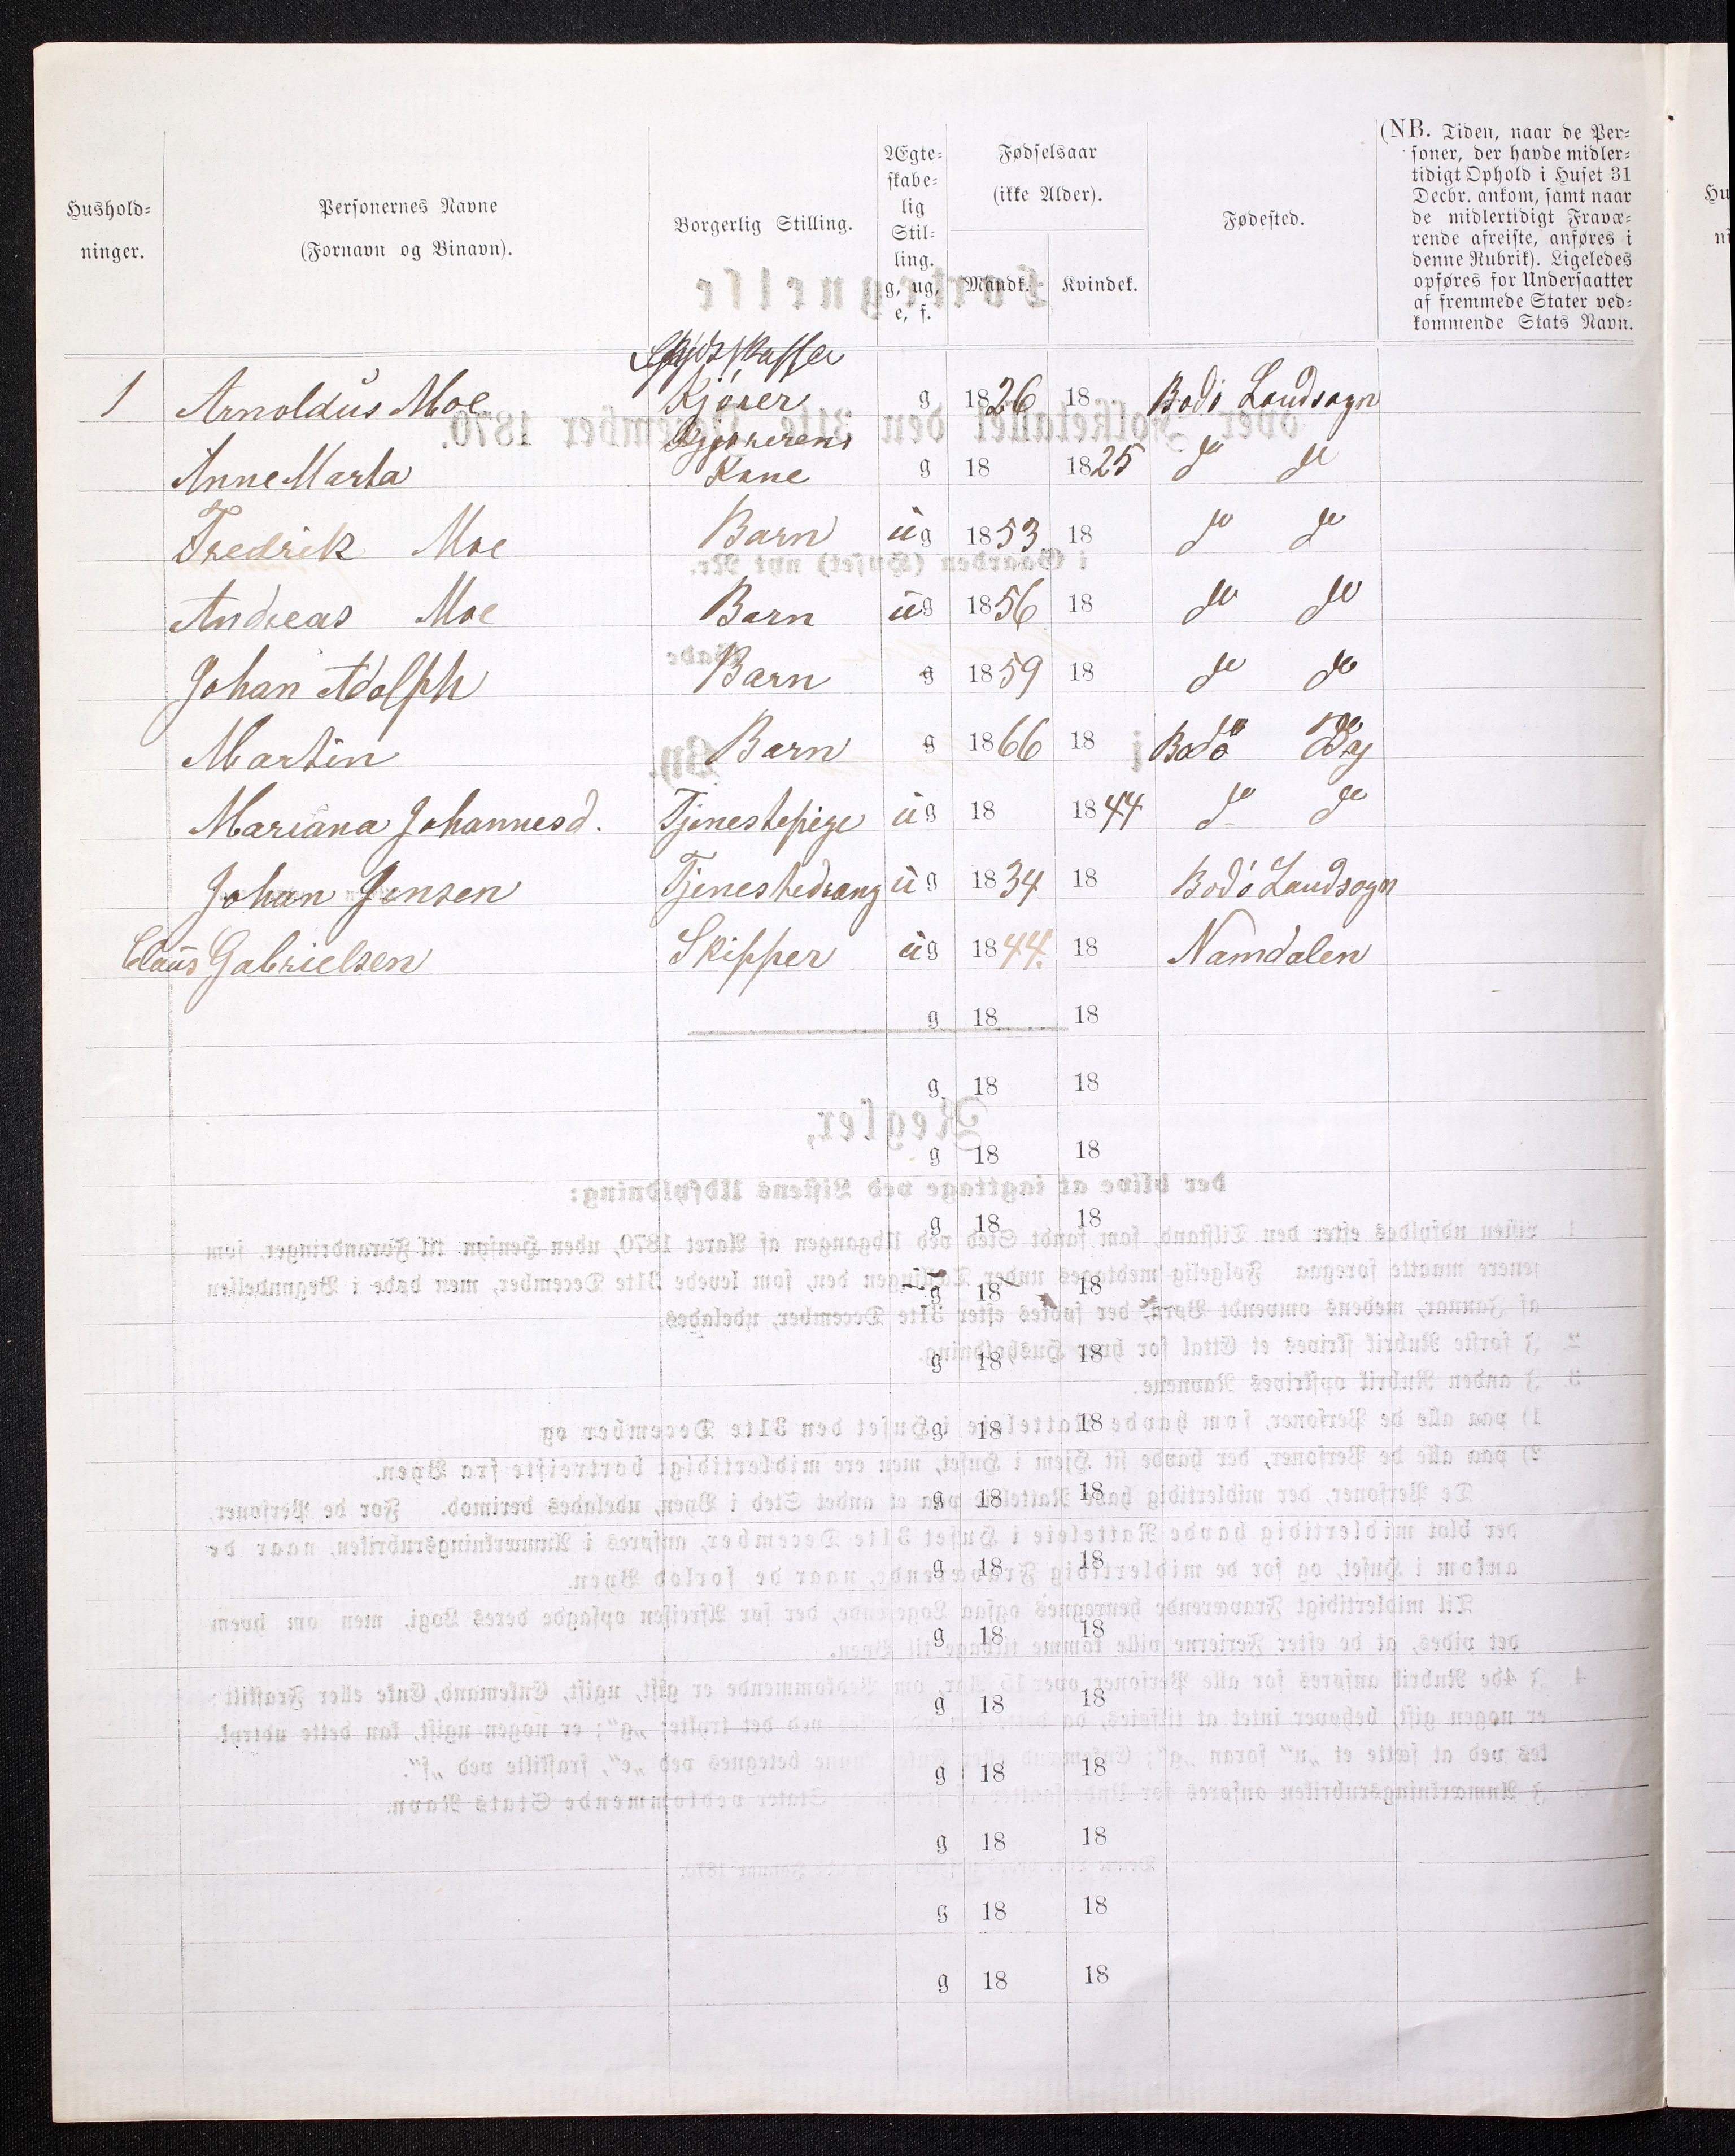 Hushold-
ninger.
Personernes Navne
(Fornavn og Binavn).
Borgerlig Stilling.
Ægte-
skabe-
lig
Stil-
ling.
g, ug,
e, f.
Fødselsaar
(ikke Alder).
Mandk. Kvindek.
Fødested.
(NB. Tiden, naar de Per-
soner, der havde midler-
tidigt Ophold i Huset 31
Decbr. ankom, samt naar
de midlertidigt Fravæ-
rende afreiste, anføres i
denne Rubrik). Ligeledes
opføres for Undersaatter
af fremmede Stater ved-
kommende Stats Navn.
Skydsskaffer
1 Arnoldus Moe Kjører g 1826 18 Bodö Landsogn
Kjørerens
Anne Marta Kone g 18 1825 do do
Fredrik Moe Barn ug 1853 18 do do
Andreas Moe Barn ug 1856 18 do do
Johan Adolph Barn g 1859 18 do do
Martin Barn g 1866 18 Bodö By
Mariana Johannesd. Tjenestepige ug 18 1844 do do
Johan Jensen Tjenestedreng ug 1834 18 Bodö Landsogn
Claus Gabrielsen Skipper ug 1844. 18 Namdalen
g 18 18
g 18 18
g 18 18
g 18 18
g 18 18
g 18 18
g 18 18
g 18 18
g 18 18
g 18 18
g 18 18
g 18 18
g 18 18
g 18 18
g 18 18